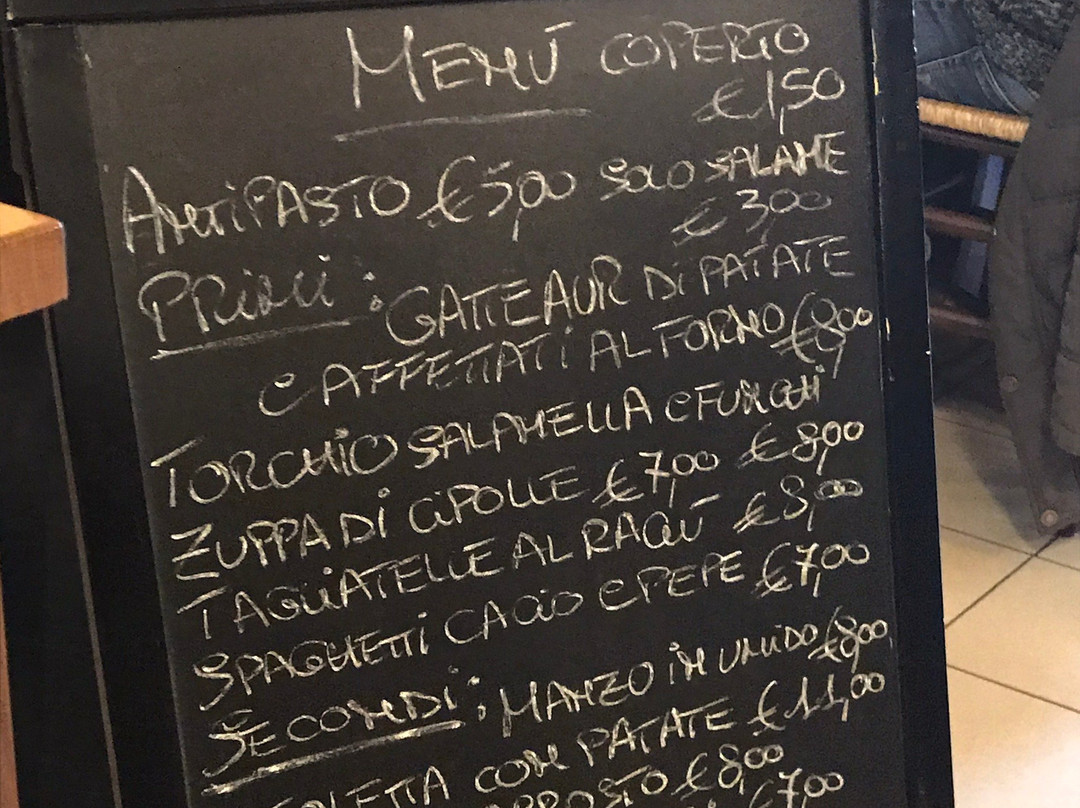 MENÚ COPERTO
€1,50
ANTIPASTO €5,00 SOLO SALAME
€3,00
PRIMI: GATTEAUR DI PATATE
E AFFETTATI AL FORNO €8,00
TORCHIO SALAMELLA E FUNGHI
€8,00
ZUPPA DI CIPOLLE €7,00
TAGLIATELLE AL RAGÚ €8,00
SPAGHETTI CACIO E PEPE €7,00
SECONDI: MANZO IN UMIDO €8,00
CON PATATE €11,00
€8,00
€7,00